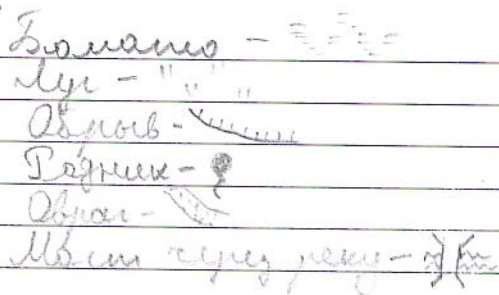 Болото -
Луг -
Обрыв -
Родник -
Овраг -
Мост через реку -